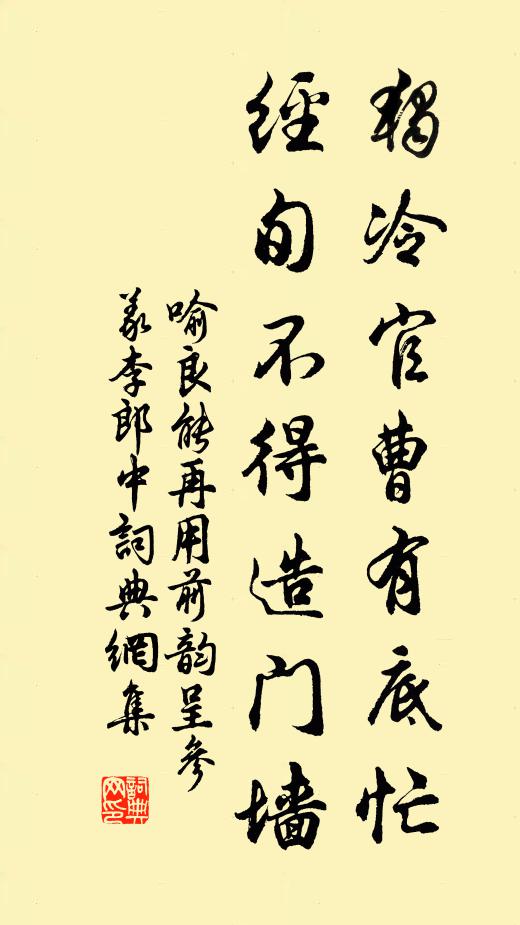 獨冷官曹有底忙
經旬不得造门墙
喻良能再用前韵呈參
義李郎中詞典網集
詞典网印